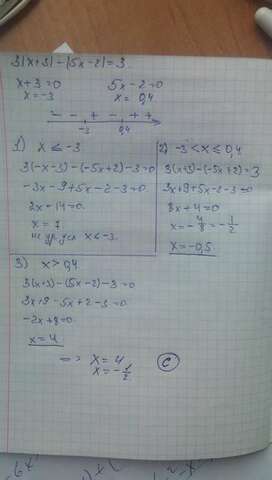 3|x+3|-|5x-2|=3
x+3=0 5x-2=0
x=-3 x=0,4
- - + - + +
-3 0,4
1) x ≤ -3
3(-x-3)-(-5x+2)-3=0
-3x-9+5x-2-3=0
2x-14=0
x=7
не уд. усл x≤-3.
2) -3<x≤0,4
3(x+3)-(-5x+2)=3
3x+9+5x-2-3=0
8x+4=0
x=-4/8=-1/2
x=-0,5
3) x>0,4
3(x+3)-(5x-2)-3=0
3x+9-5x+2-3=0
-2x+8=0
x=4
=> x=4
x=-1/2
C